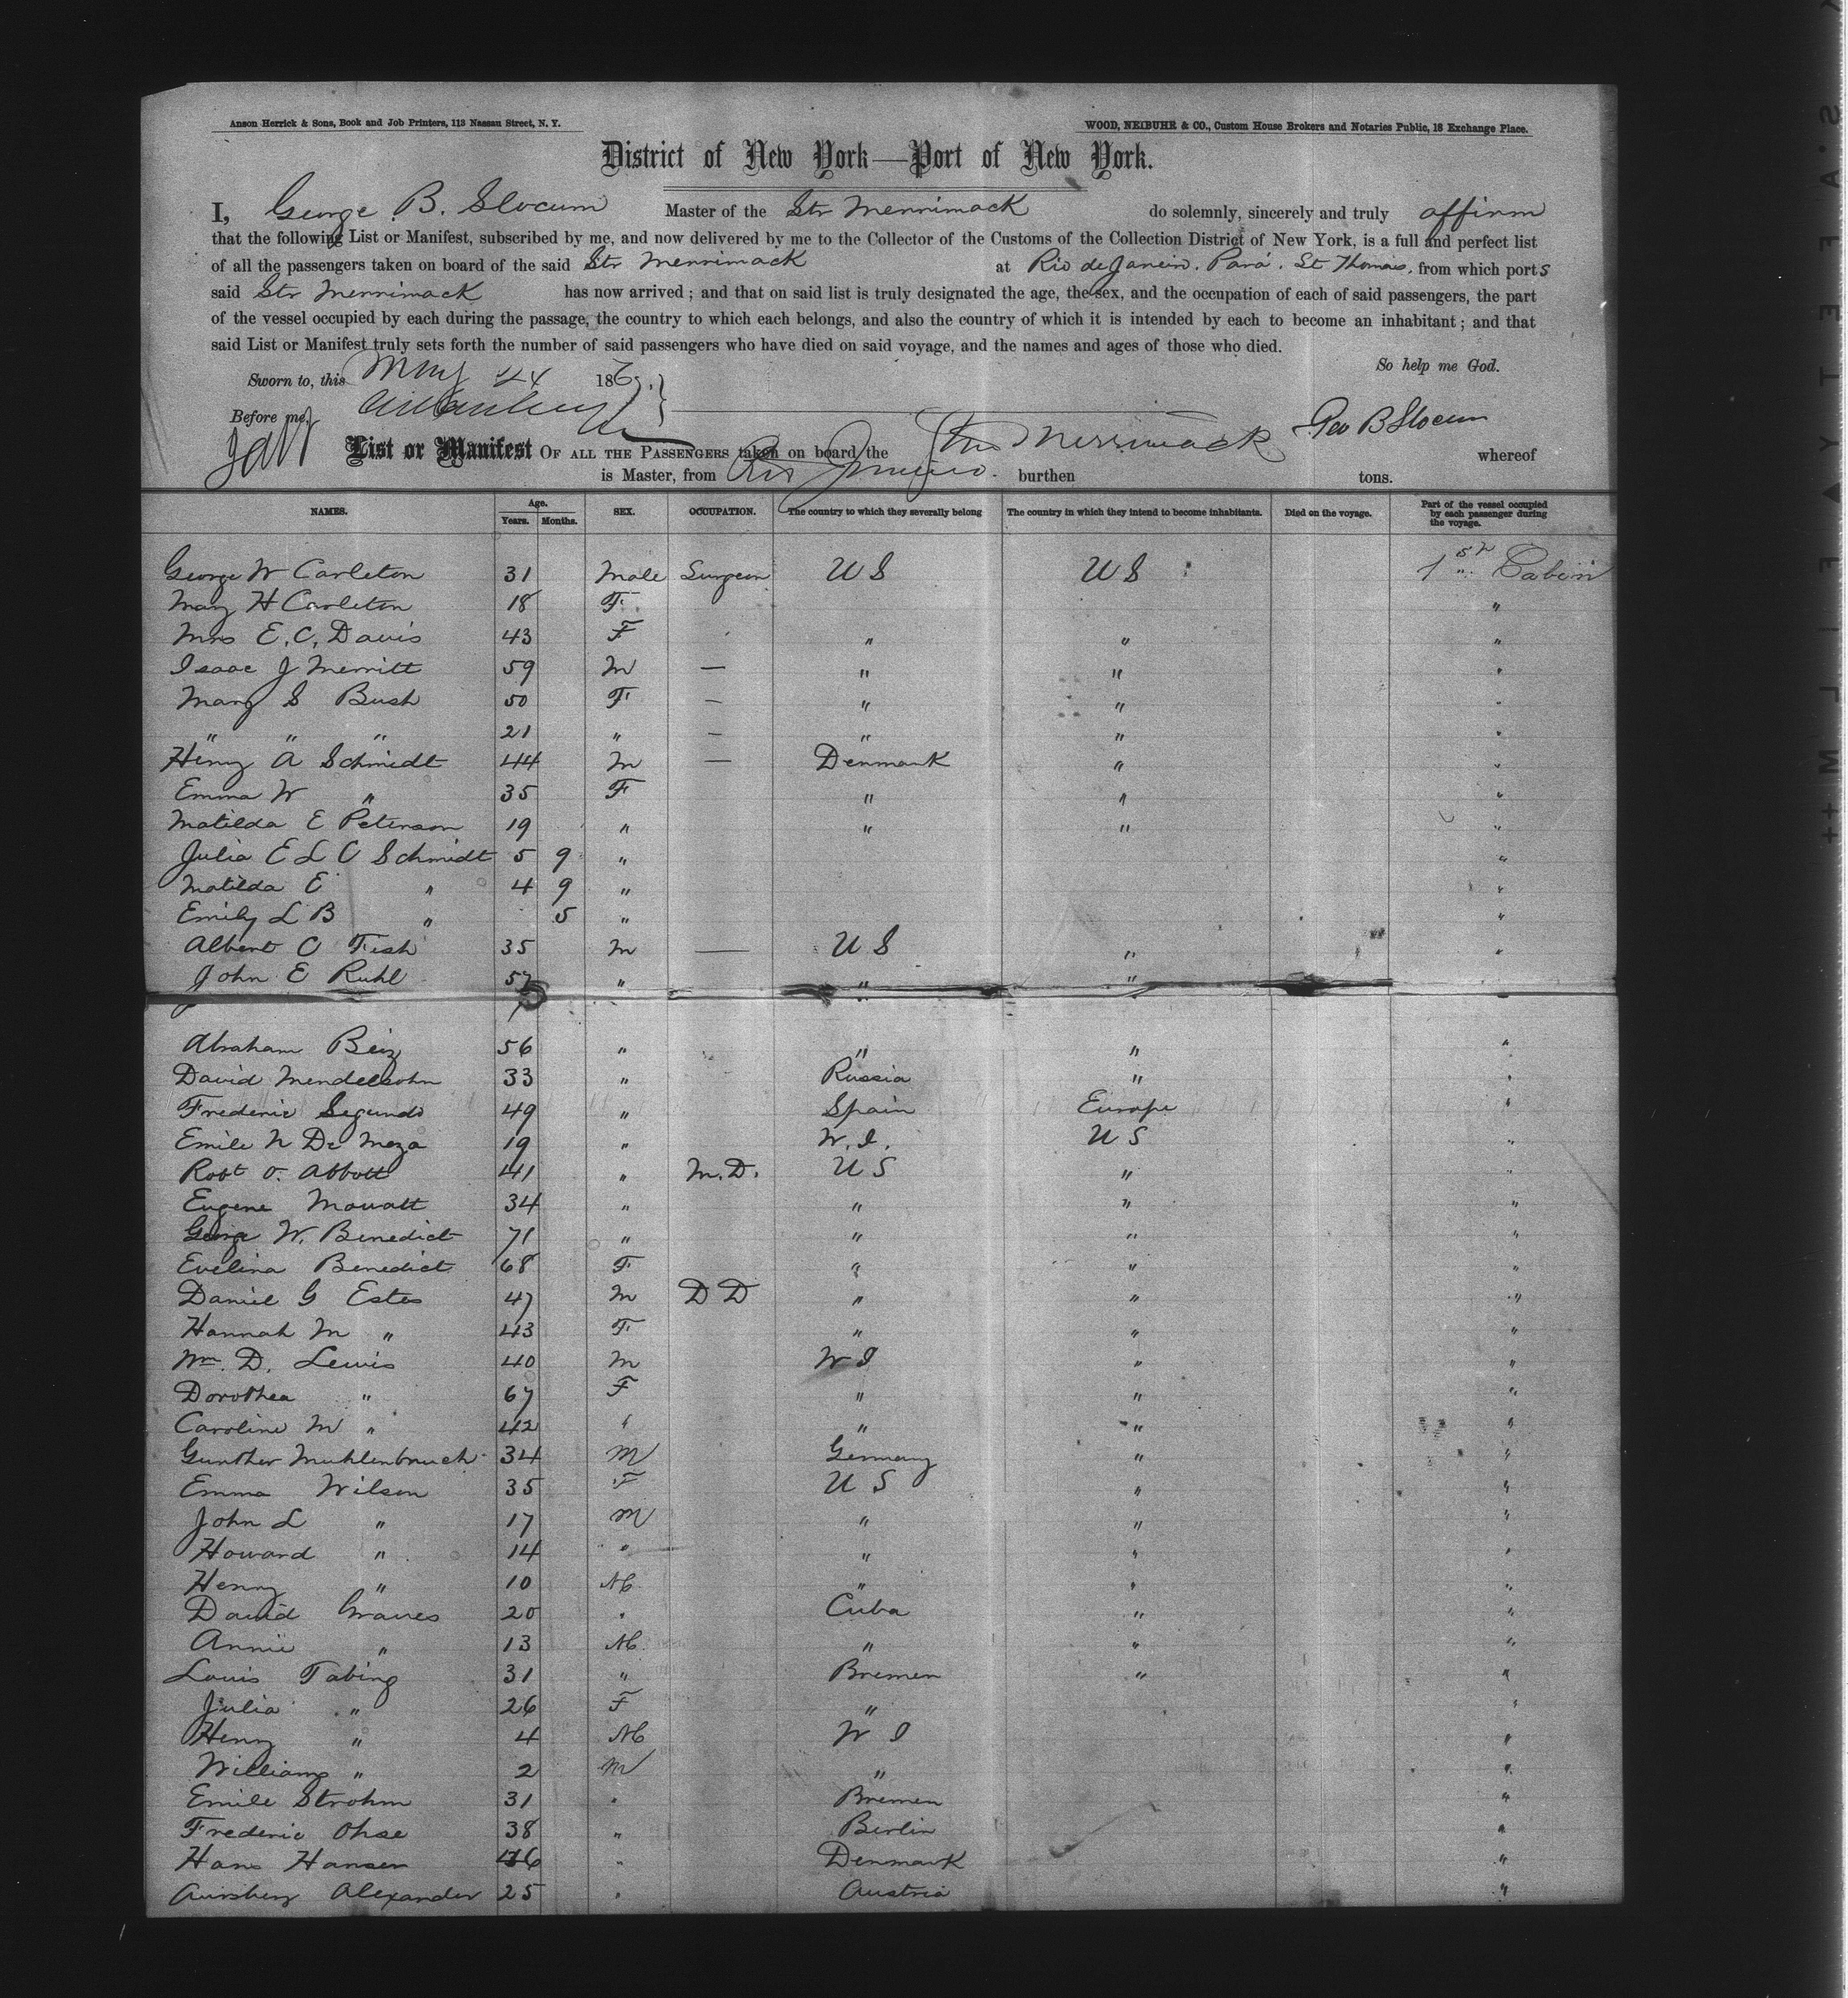 Anson Herrick & Sons, Book and Job Printers, 113 Nassau Street, N. Y.
WOOD, NEIBUHR & CO., Custom House Brokers and Notaries Public, 18 Exchange Place.
District of New York—Port of New York.
I, George B. Slocum Master of the Str Merrimack do solemnly, sincerely and truly affirm
that the following List or Manifest, subscribed by me, and now delivered by me to the Collector of the Customs of the Collection District of New York, is a full and perfect list
of all the passengers taken on board of the said Str Merrimack at Rio de Janeiro. Pará. St Thomas, from which ports
said Str Merrimack has now arrived; and that on said list is truly designated the age, the sex, and the occupation of each of said passengers, the part
of the vessel occupied by each during the passage, the country to which each belongs, and also the country of which it is intended by each to become an inhabitant; and that
said List or Manifest truly sets forth the number of said passengers who have died on said voyage, and the names and ages of those who died.
So help me God.
Sworn to, this May 24 186
Before me,
Geo B Slocum
List or Manifest OF ALL THE PASSENGERS taken on board the Str Merrimack whereof
is Master, from Rio Janeiro. burthen tons.
NAMES. Age. Years. Months. SEX. OCCUPATION. The country to which they severally belong The country in which they intend to become inhabitants. Died on the voyage. Part of the vessel occupied by each passenger during the voyage.
George W Carleton 31 Male Surgeon U S U S 1st Cabin
May H Carleton 18 F "
Mrs E. C. Davis 43 F " " "
Isaac J Merritt 59 M — " " "
Mary S Bush 50 F — " " "
" " " 21 " — " " "
Henry A Schmidt 44 M — Denmark " "
Emma W " 35 F " " "
Matilda E Peterson 19 " " " "
Julia E L C Schmidt 5 9 " "
Matilda E " 4 9 " "
Emily L B " 5 " "
Albert C Fish 35 M — U S " "
John E Ruhl 57 " " "
Abraham Beiz 56 " " " "
David Mendelsohn 33 " Russia " "
Frederic Segundo 49 " Spain Europe "
Emile N De Meza 19 " W. I. U S "
Robt O. Abbott 41 " M.D. U S " "
Eugene Mowatt 34 " " " "
George W. Benedict 71 " " " "
Evelina Benedict 68 F " " "
Daniel G Estes 47 M D D " " "
Hannah M " 43 F " " "
Wm. D. Lewis 40 M W I " "
Dorothea " 67 F " " "
Caroline M " 42 " " " "
Gunther Muhlenbruch 34 M Germany " "
Emma Wilson 35 F U S " "
John L " 17 M " " "
Howard " 14 " " " "
Henry " 10 M " " "
David Graves 20 " Cuba " "
Annie " 13 M " " "
Louis Tabing 31 " Bremen " "
Julia " 26 F " "
Henry " 4 M W I "
William " 2 M " "
Emile Strohm 31 " Bremen "
Frederic Ohse 38 " Berlin "
Hans Hansen 36 " Denmark "
Alexander 25 " Austria "